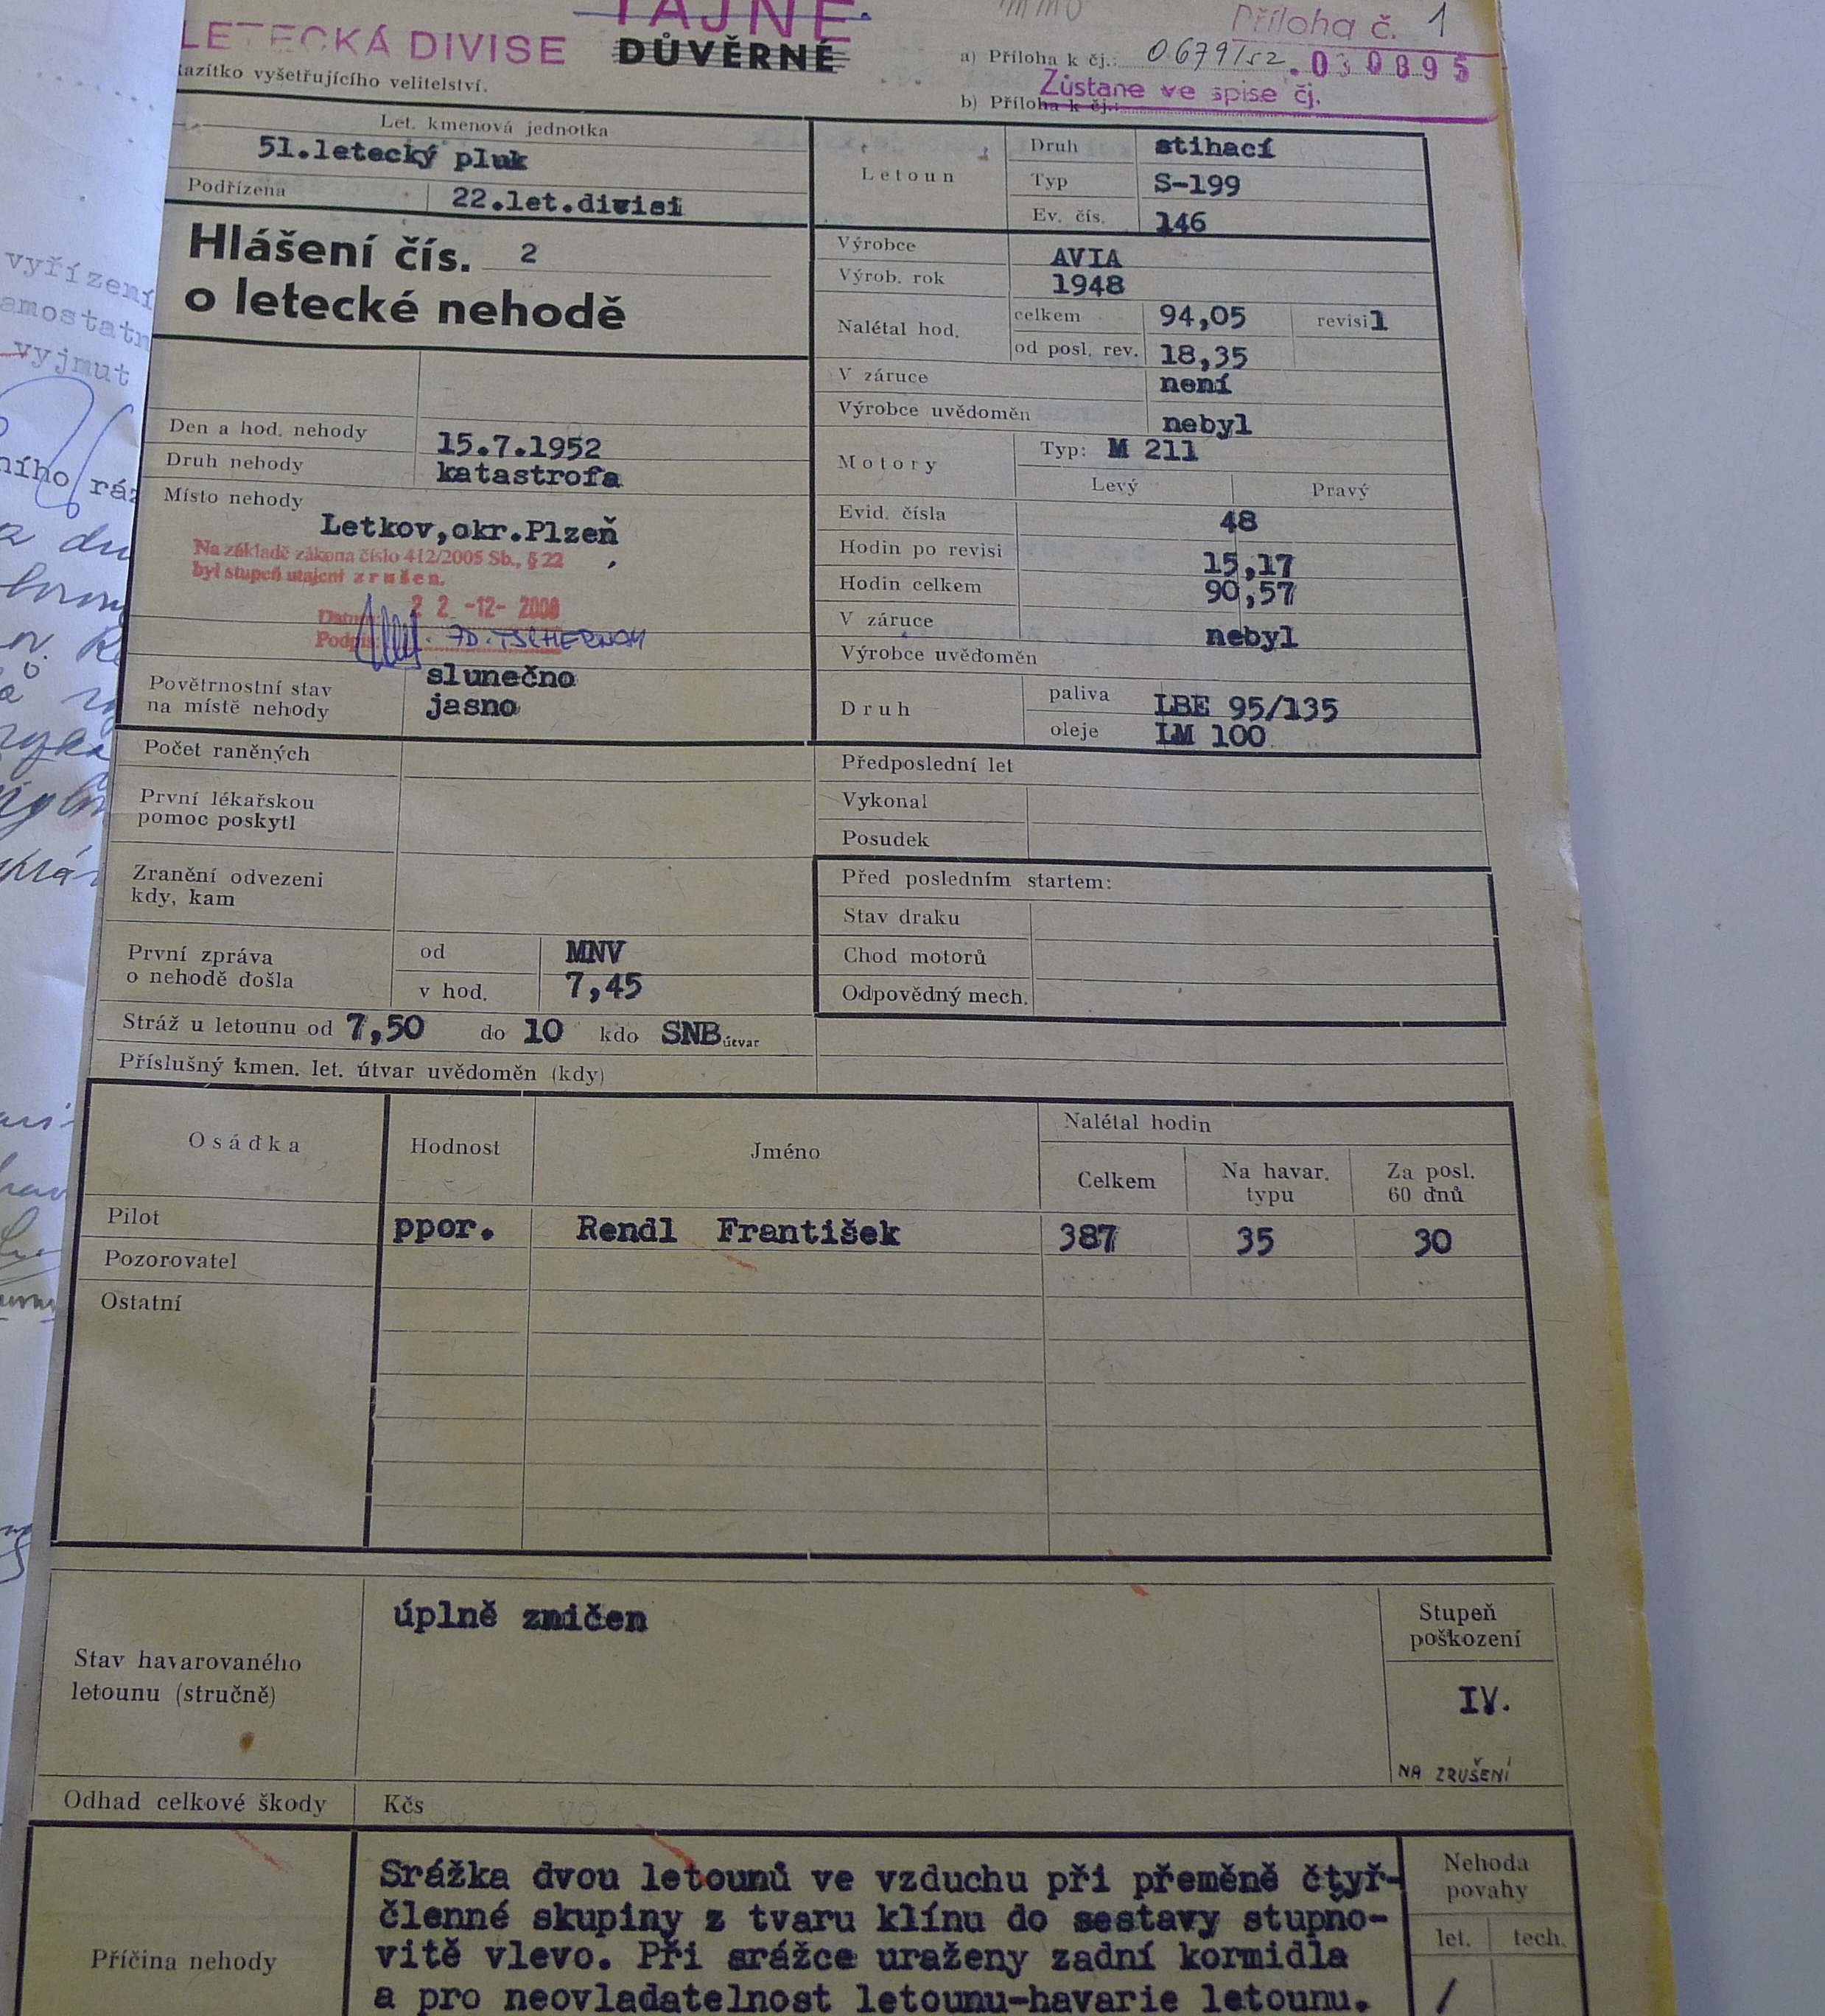 TAJNÉ
Příloha č. 1
LETECKÁ DIVISE
DŮVĚRNÉ
a) Příloha k čj.: 0679/52 .030895
Zůstane ve spise čj.
razítko vyšetřujícího velitelství.
b) Příloha k čj.:
Let. kmenová jednotka
51.letecký pluk
Podřízena 22.let.divisi
Letoun
Druh stihací
Typ S-199
Ev. čís. 146
Hlášení čís. 2
o letecké nehodě
Výrobce AVIA
Výrob. rok 1948
Nalétal hod. celkem 94,05 revisi 1
od posl. rev. 18,35
V záruce není
Výrobce uvědoměn nebyl
Den a hod. nehody 15.7.1952
Druh nehody katastrofa
Místo nehody
Letkov,okr.Plzeň
Na základě zákona číslo 412/2005 Sb., § 22
byl stupeň utajení zrušen.
Datum: 22 -12- 2008
Podpis:
Motory Typ: M 211
Levý Pravý
Evid. čísla 48
Hodin po revisi 15,17
Hodin celkem 90,57
V záruce nebyl
Výrobce uvědoměn
Povětrnostní stav slunečno
na místě nehody jasno
Druh paliva LBE 95/135
oleje LM 100
Počet raněných
První lékařskou
pomoc poskytl
Zranění odvezeni
kdy, kam
První zpráva od MNV
o nehodě došla v hod. 7,45
Stráž u letounu od 7,50 do 10 kdo SNB útvar
Příslušný kmen. let. útvar uvědoměn (kdy)
Předposlední let
Vykonal
Posudek
Před posledním startem:
Stav draku
Chod motorů
Odpovědný mech.
Osádka Hodnost Jméno Nalétal hodin
Celkem Na havar. typu Za posl. 60 dnů
Pilot ppor. Rendl František 387 35 30
Pozorovatel
Ostatní
Stav havarovaného
letounu (stručně)
úplně zničen
Stupeň
poškození
IV.
NA ZRUŠENÍ
Odhad celkové škody Kčs
Příčina nehody
Srážka dvou letounů ve vzduchu při přeměně čtyř-
členné skupiny z tvaru klínu do sestavy stupno-
vitě vlevo. Při srážce uraženy zadní kormidla
a pro neovladatelnost letounu-havarie letounu.
Nehoda
povahy
let. tech.
/
vyřízení
vyjmut